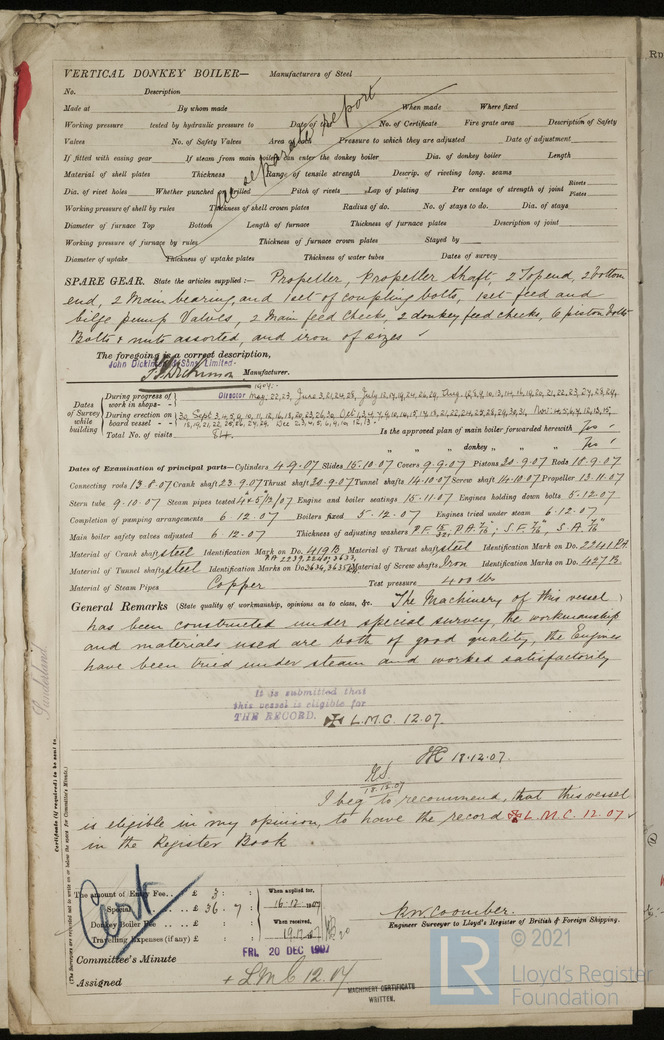 VERTICAL DONKEY BOILER— Manufacturers of Steel
No. Description
Made at By whom made When made Where fixed
Working pressure tested by hydraulic pressure to Date of test No. of Certificate Fire grate area Description of Safety
Valves No. of Safety Valves Area of each Pressure to which they are adjusted Date of adjustment
If fitted with easing gear If steam from main boilers can enter the donkey boiler Dia. of donkey boiler Length
Material of shell plates Thickness Range of tensile strength Descrip. of riveting long. seams
Dia. of rivet holes Whether punched or drilled Pitch of rivets Lap of plating Per centage of strength of joint Rivets Plates
Working pressure of shell by rules Thickness of shell crown plates Radius of do. No. of stays to do. Dia. of stays
Diameter of furnace Top Bottom Length of furnace Thickness of furnace plates Description of joint
Working pressure of furnace by rules Thickness of furnace crown plates Stayed by
Diameter of uptake Thickness of uptake plates Thickness of water tubes Dates of survey
separate report
SPARE GEAR. State the articles supplied:— Propeller, Propeller shaft, 2 Top end, 2 bottom
end, 2 Main bearing, and 1 set of coupling bolts, 1 set feed and
bilge pump Valves, 2 Main feed checks, 2 donkey feed checks, 6 piston bolts
Bolts & nuts assorted, and iron of sizes
The foregoing is a correct description,
John Dickinson & Sons, Limited.
Manufacturer.
Director
Dates of Survey while building
During progress of work in shops - - 1907:- May 22, 23, June 3, 21, 24, 25, July 12, 17, 19, 24, 26, 29, Aug.
During erection on board vessel - - 30 Sept 3, 4, 5, 9, 10, 11, 12, 16, 18, 20, 23, 26, 30 Oct
18, 19, 21, 22, 25, 26, 27, 29, Dec 2, 3, 4, 5, 6, 9, 10, 12, 13.
Total No. of visits 84. Is the approved plan of main boiler forwarded herewith Yes
" " " donkey " " " Yes
Dates of Examination of principal parts—Cylinders 4.9.07 Slides 15.10.07 Covers 9.9.07 Pistons 20.9.07 Rods 10.9.07
Connecting rods 13.8.07 Crank shaft 23.9.07 Thrust shaft 20.9.07 Tunnel shafts 14.10.07 Screw shaft 14.10.07 Propeller 13.11.07
Stern tube 9.10.07 Steam pipes tested 4th & 5/12/07 Engine and boiler seatings 15.11.07 Engines holding down bolts 5.12.07
Completion of pumping arrangements 6.12.07 Boilers fixed 5.12.07 Engines tried under steam 6.12.07
Main boiler safety valves adjusted 6.12.07 Thickness of adjusting washers P.F. 15/32, P.A. 7/16, S.F. 7/16", S.A. 7/16"
Material of Crank shaft steel Identification Mark on Do. 419B Material of Thrust shaft steel Identification Mark on Do. 2241 P.A.
Material of Tunnel shafts steel Identification Marks on Do. Material of Screw shafts Iron Identification Marks on Do. 427 B.
Material of Steam Pipes Copper Test pressure 400 lbs
General Remarks (State quality of workmanship, opinions as to class, &c. The Machinery of this vessel
has been constructed under special survey, the workmanship
and materials used are both of good quality, the Engines
have been tried under steam and worked satisfactorily
It is submitted that
this vessel is eligible for
THE RECORD. ✠ L.M.C. 12.07.
18.12.07.
18.12.07
I beg to recommend, that this vessel
is eligible in my opinion, to have the record ✠ L.M.C. 12.07
in the Register Book.
Sunderland
Certificate (if required) to be sent to
(The Surveyors are requested not to write on or below the space for Committee's Minute.)
Cert
The amount of Entry Fee.. £ 3 : When applied for,
Special .. .. £ 36. 7 : 16.12.1907
Donkey Boiler Fee .. .. £ : When received,
Travelling Expenses (if any) £ : 19.12.07
R.W. Coomber.
Engineer Surveyor to Lloyd's Register of British & Foreign Shipping.
FRI. 20 DEC 1907
Committee's Minute
Assigned + L.M.C 12.07
MACHINERY CERTIFICATE
WRITTEN.
LR © 2021
Lloyd's Register
Foundation